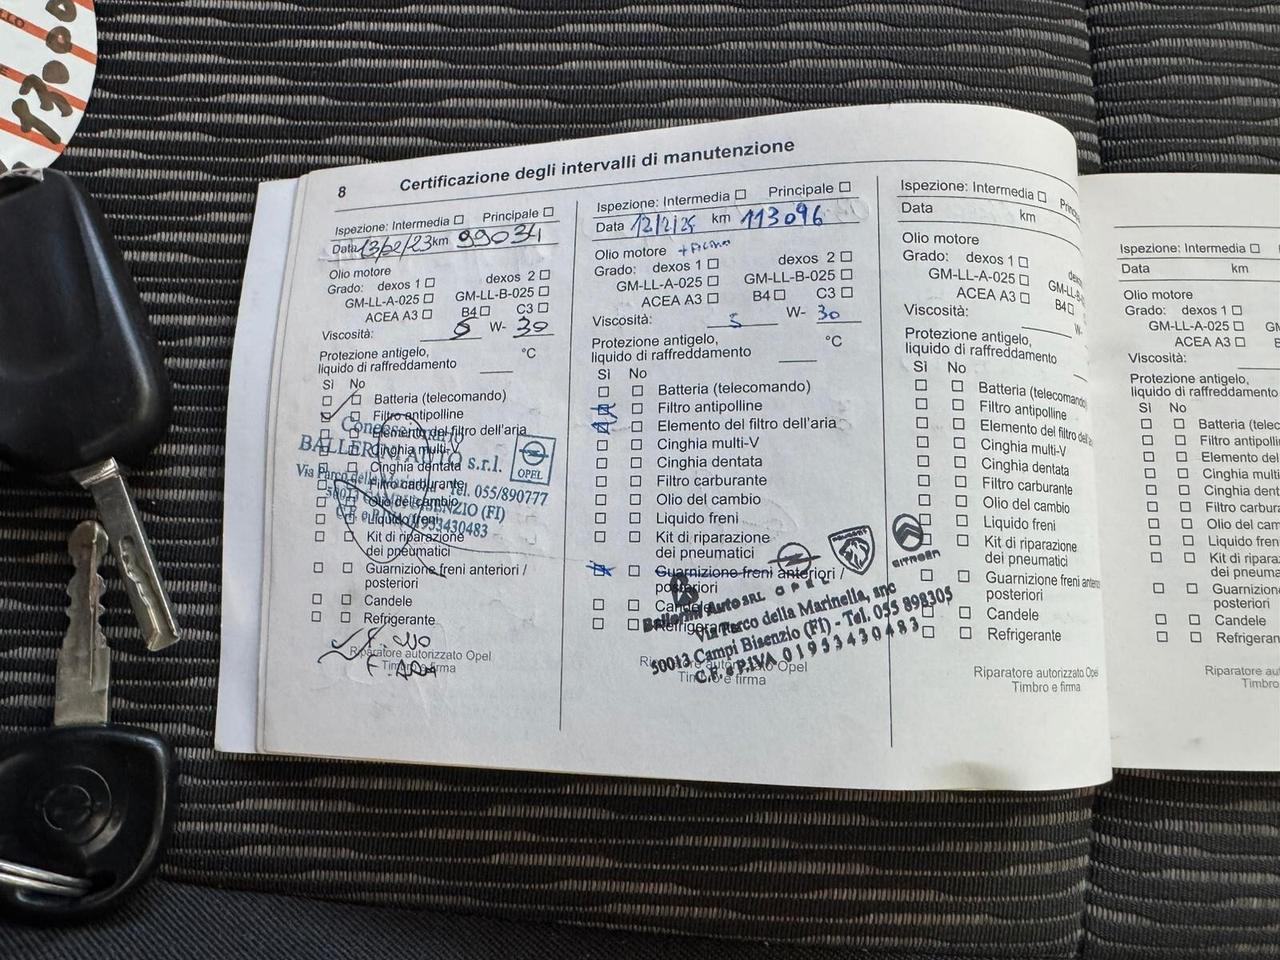 13000
8 Certificazione degli intervalli di manutenzione
Ispezione: Intermedia Principale
Data 13/02/23 km 99034
Olio motore
Grado: dexos 1 dexos 2
GM-LL-A-025 GM-LL-B-025
ACEA A3 B4 C3
Viscosità: 5 W- 30
Protezione antigelo,
liquido di raffreddamento °C
Sì No
Batteria (telecomando)
Filtro antipolline
Elemento del filtro dell'aria
Cinghia multi-V
Cinghia dentata
Filtro carburante
Olio del cambio
Liquido freni
Kit di riparazione
dei pneumatici
Guarnizione freni anteriori /
posteriori
Candele
Refrigerante
Riparatore autorizzato Opel
Timbro e firma
Concessionario
BALLERINI AUTO s.r.l.
OPEL
Via Parco della Tel. 055/890777
50013 BISENZIO (FI)
01933430483
Ispezione: Intermedia Principale
Data 12/2/25 km 113096
Olio motore
Grado: dexos 1 dexos 2
GM-LL-A-025 GM-LL-B-025
ACEA A3 B4 C3
Viscosità: 5 W- 30
Protezione antigelo,
liquido di raffreddamento °C
Sì No
Batteria (telecomando)
Filtro antipolline
Elemento del filtro dell'aria
Cinghia multi-V
Cinghia dentata
Filtro carburante
Olio del cambio
Liquido freni
Kit di riparazione
dei pneumatici
Guarnizione freni anteriori /
posteriori
Candele
Refrigerante
Riparatore autorizzato Opel
Timbro e firma
OPEL PEUGEOT CITROEN
Ballerini Auto SRL
Via Parco della Marinella, snc
50013 Campi Bisenzio (FI) - Tel. 055 898305
C.F. e P.IVA 01933430483
Ispezione: Intermedia
Data km
Olio motore
Grado: dexos 1
GM-LL-A-025 GM-LL-B-
ACEA A3 B4
Viscosità: W-
Protezione antigelo,
liquido di raffreddamento
Sì No
Batteria (telecomando
Filtro antipolline
Elemento del filtro dell'a
Cinghia multi-V
Cinghia dentata
Filtro carburante
Olio del cambio
Liquido freni
Kit di riparazione
dei pneumatici
Guarnizione freni anter
posteriori
Candele
Refrigerante
Riparatore autorizzato Opel
Timbro e firma
Ispezione: Intermedia
Data km
Olio motore
Grado: dexos 1
GM-LL-A-025
ACEA A3
Viscosità:
Protezione antigelo,
liquido di raffreddamento
Sì No
Batteria (telec
Filtro antipolli
Elemento del
Cinghia multi
Cinghia dent
Filtro carbura
Olio del cam
Liquido fren
Kit di ripara
dei pneuma
Guarnizione
posteriori
Candele
Refrigeran
Riparatore au
Timbro